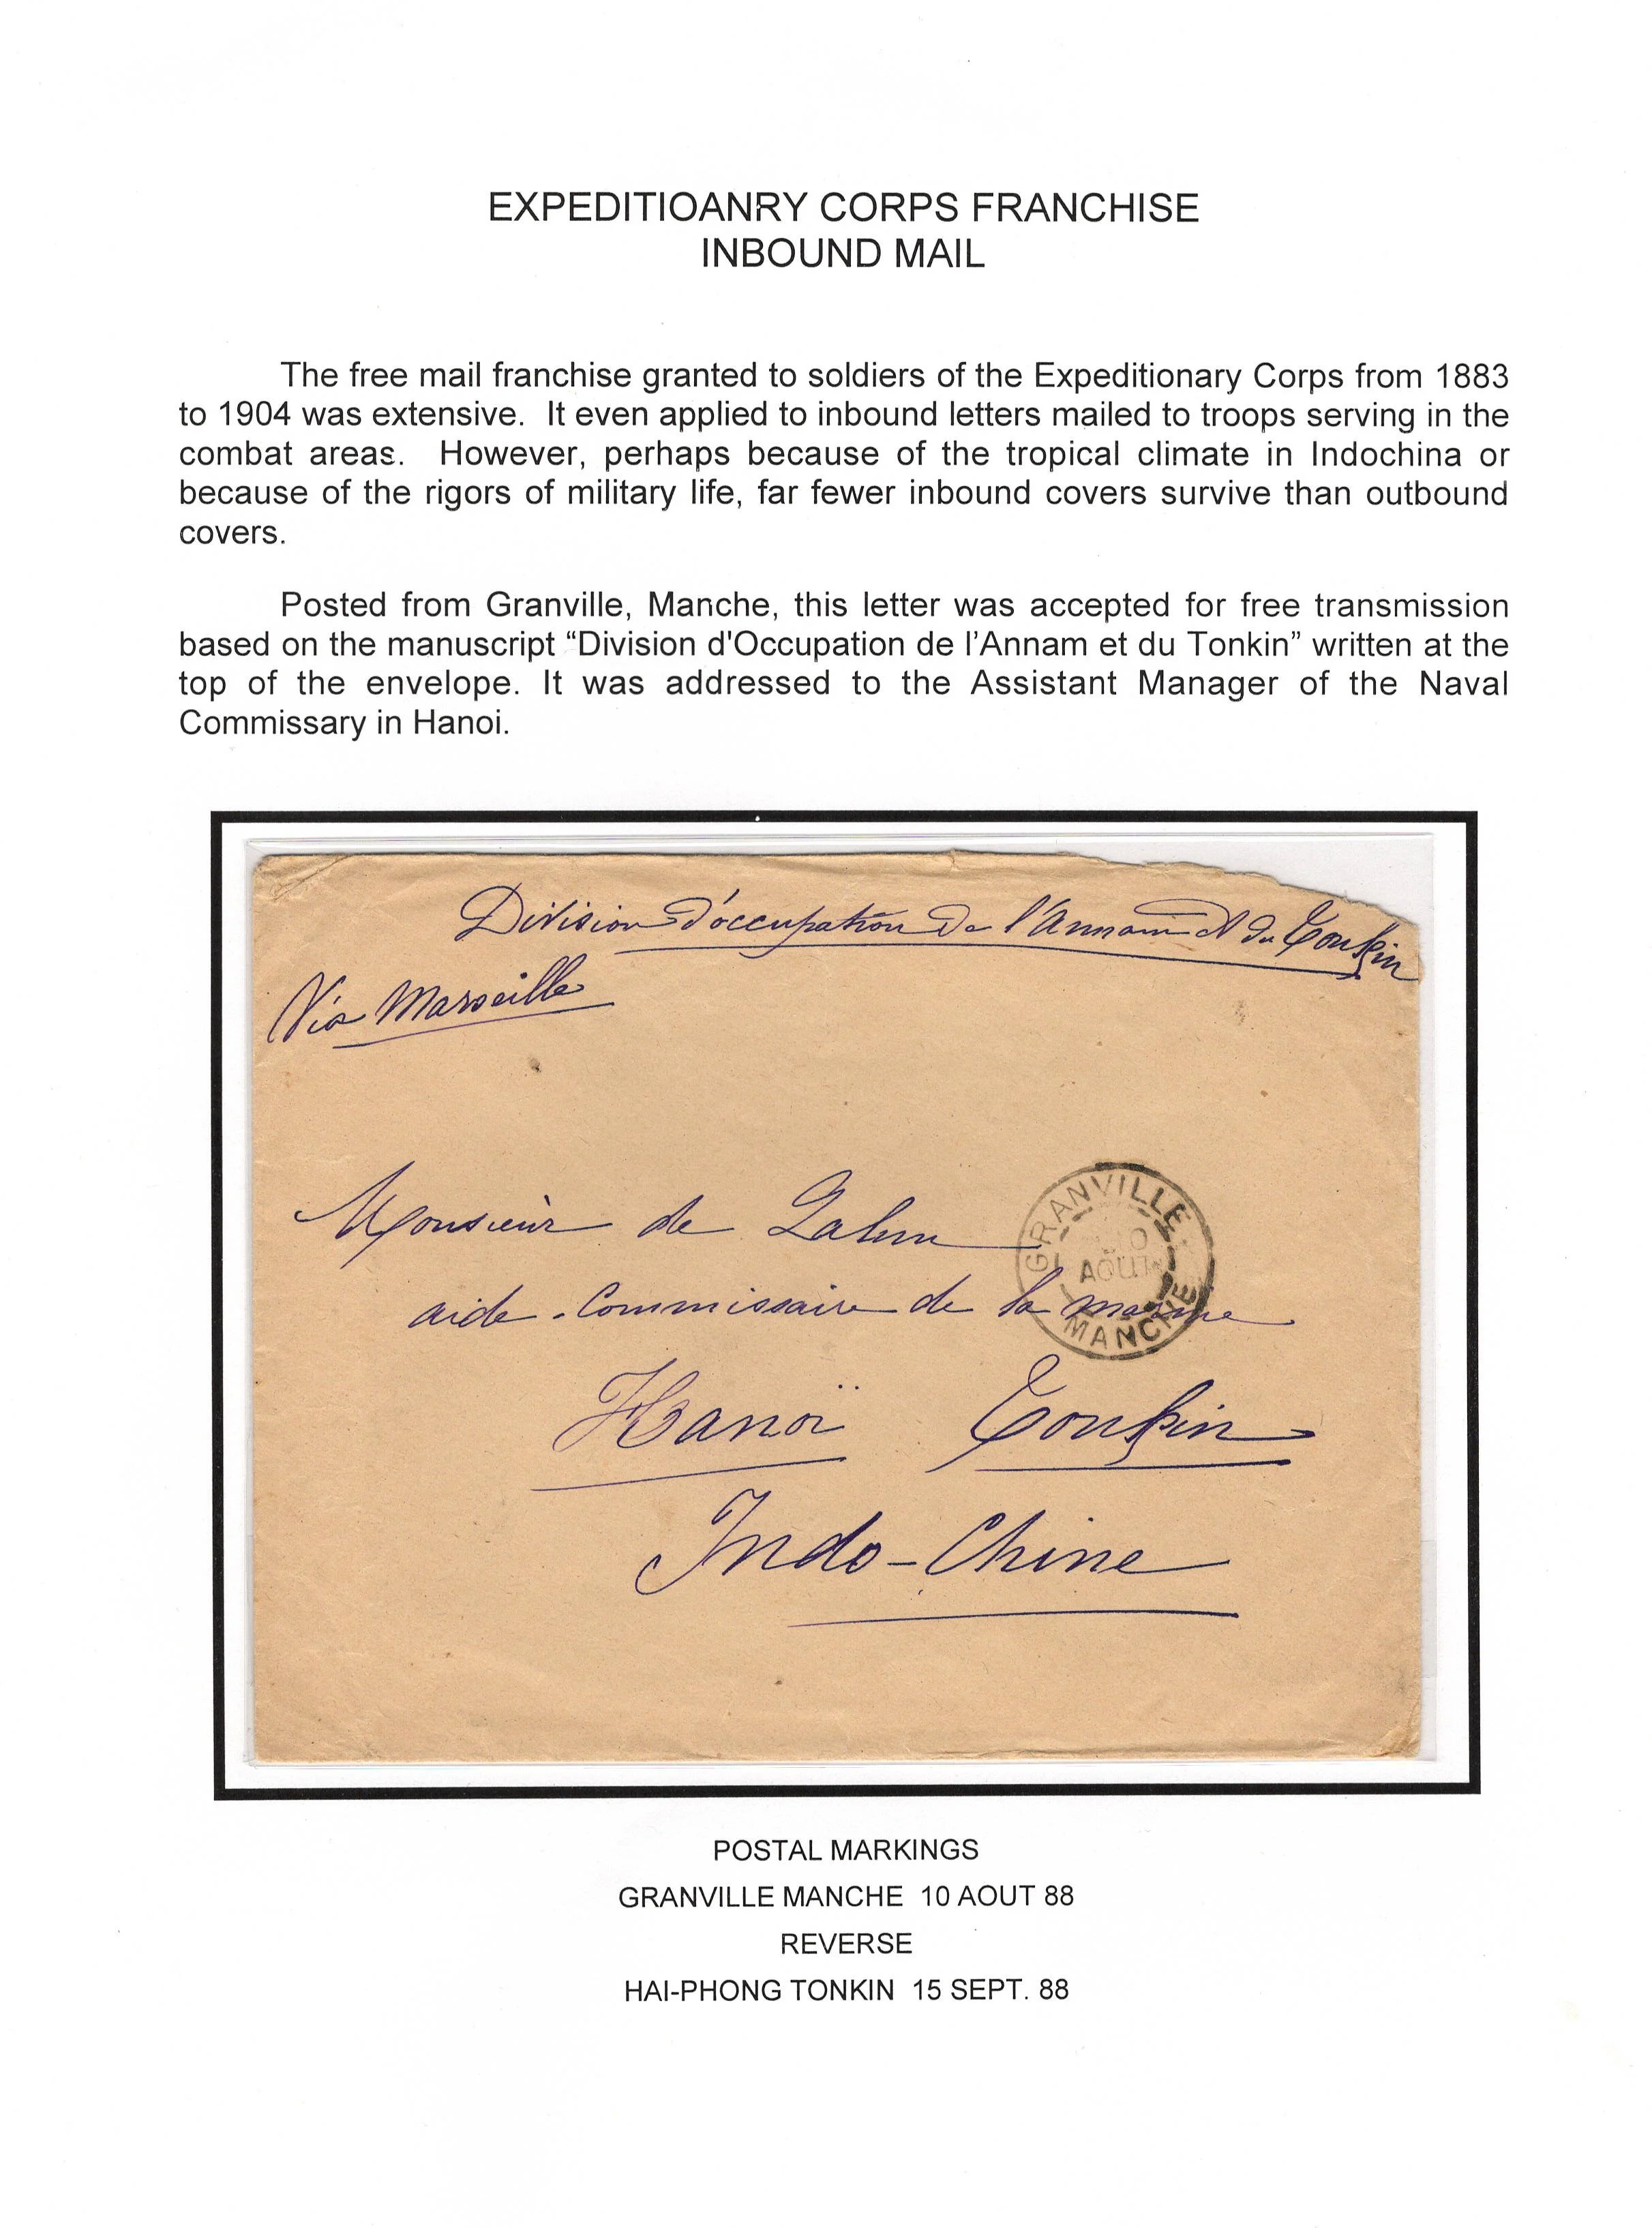 EXPEDITIOANRY CORPS FRANCHISE
INBOUND MAIL
The free mail franchise granted to soldiers of the Expeditionary Corps from 1883
to 1904 was extensive. It even applied to inbound letters mailed to troops serving in the
combat areas. However, perhaps because of the tropical climate in Indochina or
because of the rigors of military life, far fewer inbound covers survive than outbound
covers.
Posted from Granville, Manche, this letter was accepted for free transmission
based on the manuscript “Division d'Occupation de l’Annam et du Tonkin” written at the
top of the envelope. It was addressed to the Assistant Manager of the Naval
Commissary in Hanoi.
Division d'occupation de l'Annam et du Tonkin
Via Marseille
Monsieur de
GRANVILLE
AOUT
MANCHE
aide-Commissaire de la marine
Hanoï Tonkin
Indo-Chine
POSTAL MARKINGS
GRANVILLE MANCHE 10 AOUT 88
REVERSE
HAI-PHONG TONKIN 15 SEPT. 88